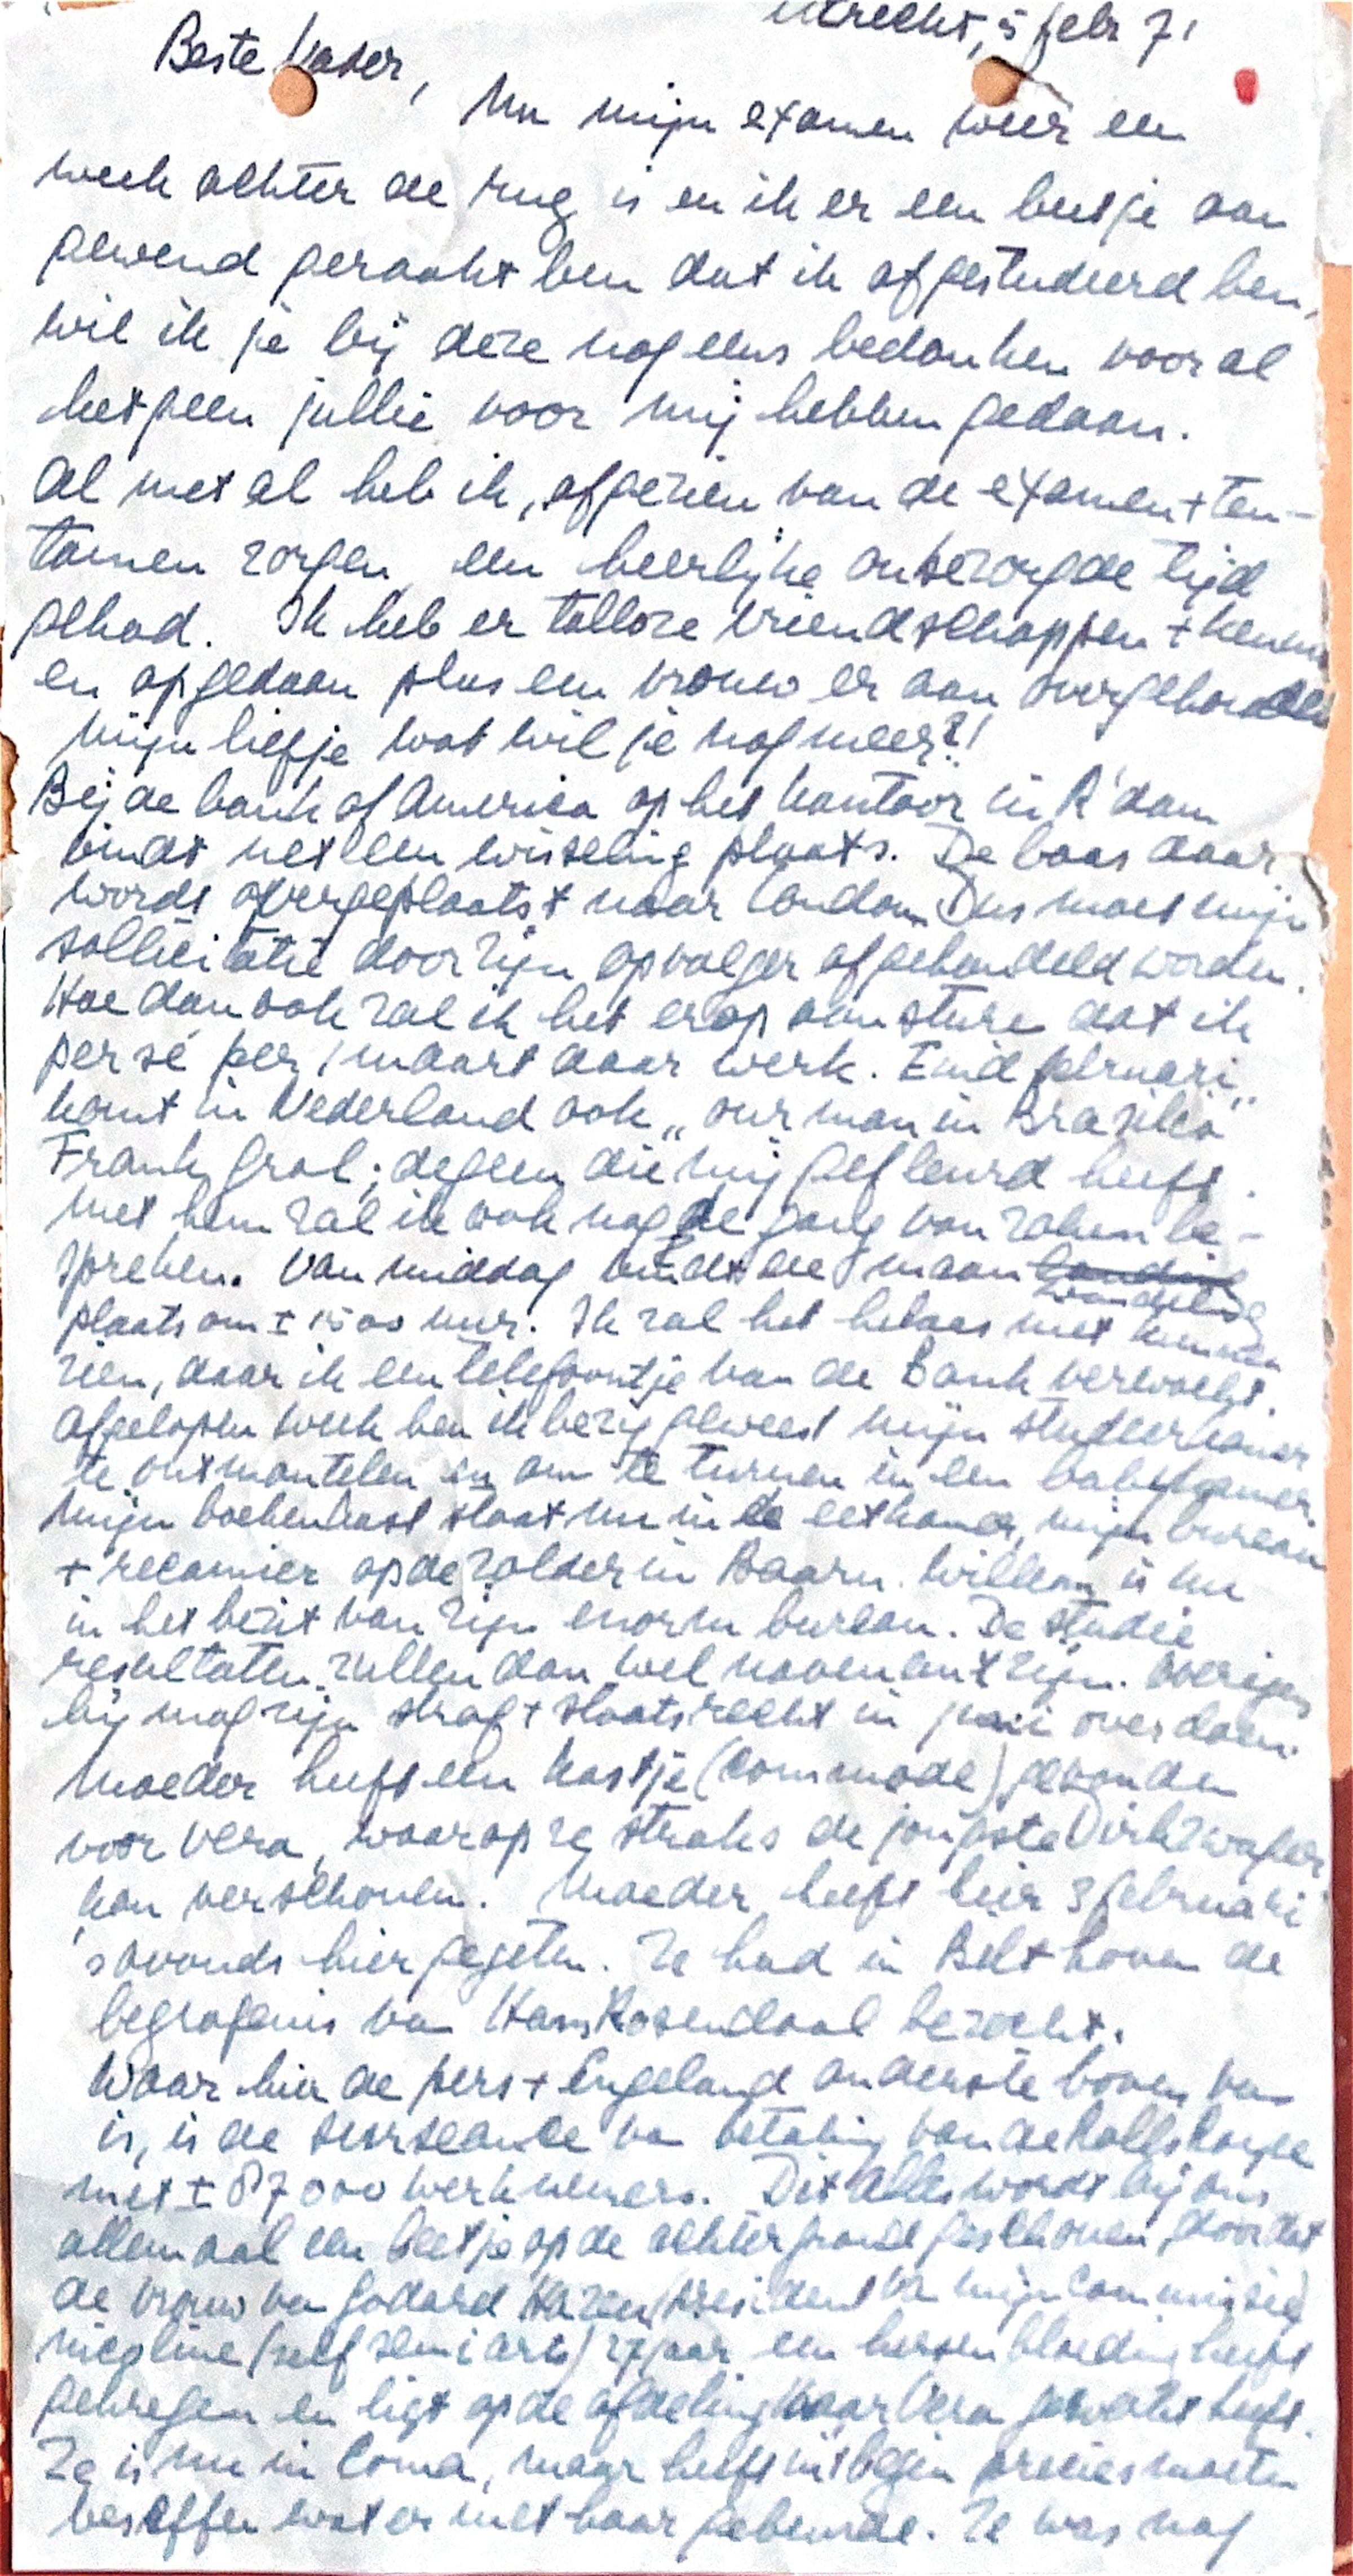 Utrecht, 5 febr 71
Beste Vader,
Nu mijn examen weer een
week achter de rug is en ik er een beetje aan
gewend geraakt ben dat ik afgestudeerd ben,
wil ik je bij deze nog eens bedanken voor al
hetgeen jullie voor mij hebben gedaan.
Al met al heb ik, afgezien van de examen + ten-
tamen zorgen, een heerlijke onbezorgde tijd
gehad. Ik heb er talloze vriendschappen +
en opgedaan plus een vrouw er aan overgehouden
mijn liefje wat wil je nog meer?!
Bij de bank of America op het kantoor in R'dam
vindt net een wisseling plaats. De baas daar
wordt overgeplaatst naar London Dus moet mijn
sollicitatie door zijn opvolger afgehandeld worden.
Hoe dan ook zal ik het erop aansture dat ik
per sé per 1 maart daar werk. Eind februari
komt in Nederland ook „our man in Brazilia"
Frank Grol; degeen die mij gefleurd heeft.
Met hem zal ik ook nog de gang van zaken be-
spreken. Van middag vindt de maan landing
wandeling
plaats om ± 1500 uur. Ik zal het helaas niet kunnen
zien, daar ik een telefoontje van de Bank verwacht.
Afgelopen week ben ik bezig geweest mijn studeerkamer
te ontmantelen en om te turnen in een babykamer
Mijn boekenkast staat nu in de eetkamer, mijn bureau
+ recamier op de zolder in Baarn. Willem is nu
in het bezit van zijn enorm bureau. De studie
resultaten zullen dan wel navenant zijn. Overigens
hij mag zijn straf + staatsrecht in juni overdoen.
Moeder heeft een kastje (commode) gevonden
voor Vera, waarop ze straks de jongste Dirkzwager
kan verschonen. Moeder heeft hier 3 februari
's avonds hier gegeten. Ze had in Bilthoven de
begrafenis van Hans Rosendaal bezocht.
Waar hier de pers + Engeland onderste boven van
is, is de surseance van betaling van de Rolls Royce
met ± 87000 werknemers. Dit alles wordt bij ons
allemaal een beetje op de achtergrond geschoven, doordat
de vrouw van Godard president van mijn Commissie
(zelf semi arts) 27 jaar een hersenbloeding heeft
gekregen en ligt op de afdeling waar Vera gewerkt heeft.
Ze is nu in coma, maar heeft in 't begin precies moeten
beseffen wat er met haar gebeurde. Ze was nog